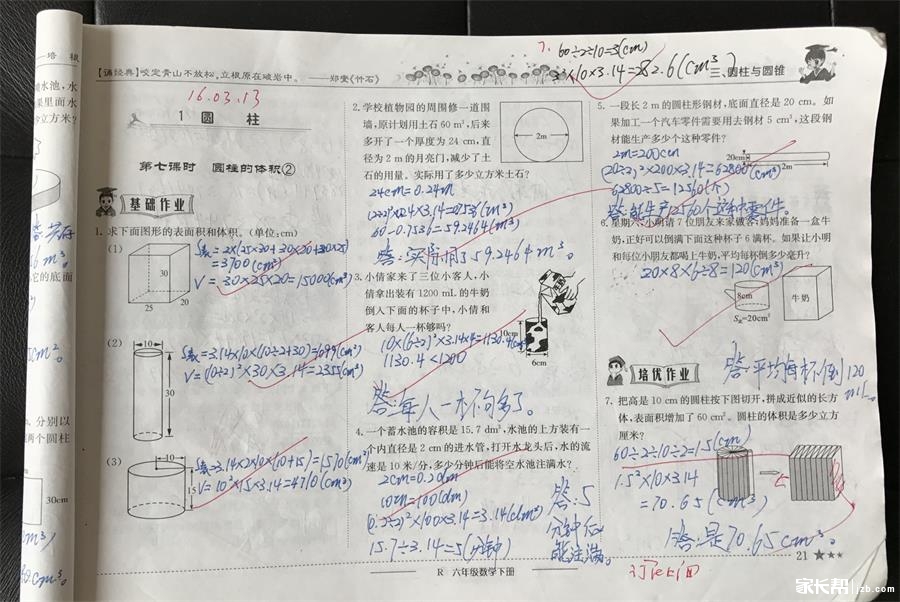 【诵经典】咬定青山不放松,立根原在破岩中。——郑燮《竹石》
7. 60÷2÷10=3(cm)
3²×10×3.14=282.6(cm³)
三、圆柱与圆锥
16.03.13
1 圆 柱
第七课时 圆柱的体积②
基础作业
1. 求下面图形的表面积和体积。(单位:cm)
(1)
30
25
20
S表=2×(25×30+30×20+20×25)
=3700(cm²)
V=30×25×20=15000(cm³)
(2)
10
30
V=(10÷2)²×30×3.14=2355(cm³)
(3)
10
15
S表=3.14×2×10×(10+15)=1570(cm²)
V=10²×15×3.14=4710(cm³)
2. 学校植物园的周围修一道围
墙,原计划用土石 60 m³,后来
多开了一个厚度为 24 cm,直
径为 2 m 的月亮门,减少了土
石的用量。实际用了多少立方米土石?
2m
24cm=0.24m
(2÷2)²×0.24×3.14=0.7536(m³)
60-0.7536=59.2464(m³)
答:实际用59.2464m³。
3. 小倩家来了三位小客人,小
倩拿出装有 1200 mL 的牛奶
倒入下面的杯子中,小倩和
客人每人一杯够吗?
10cm
6cm
10×(6÷2)²×3.14×4=1130.4(cm³)
1130.4<1200
答:每人一杯够了。
4. 一个蓄水池的容积是 15.7 dm³,水池的上方装有一
个内直径是 2 cm 的进水管,打开水龙头后,水的流
速是 10 米/分,多少分钟后能将空水池注满水?
2cm=0.2dm
10m=100(dm)
(0.2÷2)²×100×3.14=3.14(dm³)
15.7÷3.14=5(分钟)
答:5
分钟后
能注满。
5. 一段长 2 m 的圆柱形钢材,底面直径是 20 cm。如
果加工一个汽车零件需要用去钢材 5 cm³,这段钢
材能生产多少个这种零件?
2m=200cm
20cm
2m
(20÷2)²×200×3.14=62800(cm³)
62800÷5=12560(个)
答:能生产12560个这种零件。
6. 星期六,小明请 7 位朋友来家做客,妈妈准备一盒牛
奶,正好可以倒满下面这种杯子 6 满杯。如果让小明
和每位小朋友都喝上牛奶,平均每杯倒多少毫升?
20×8×6÷8=120(cm³)
8cm
S底=20cm²
牛奶
答:平均每杯倒120
mL。
培优作业
7. 把高是 10 cm 的圆柱按下图切开,拼成近似的长方
体,表面积增加了 60 cm²。圆柱的体积是多少立方
厘米?
60÷2÷10÷2=1.5(cm)
1.5²×10×3.14
=70.65(cm³)
答:是70.65cm³。
21
R 六年级数学下册
水池,水
果里面水
立方米?
的底面
分别以
两个圆柱
30cm
家长帮 jzb.com